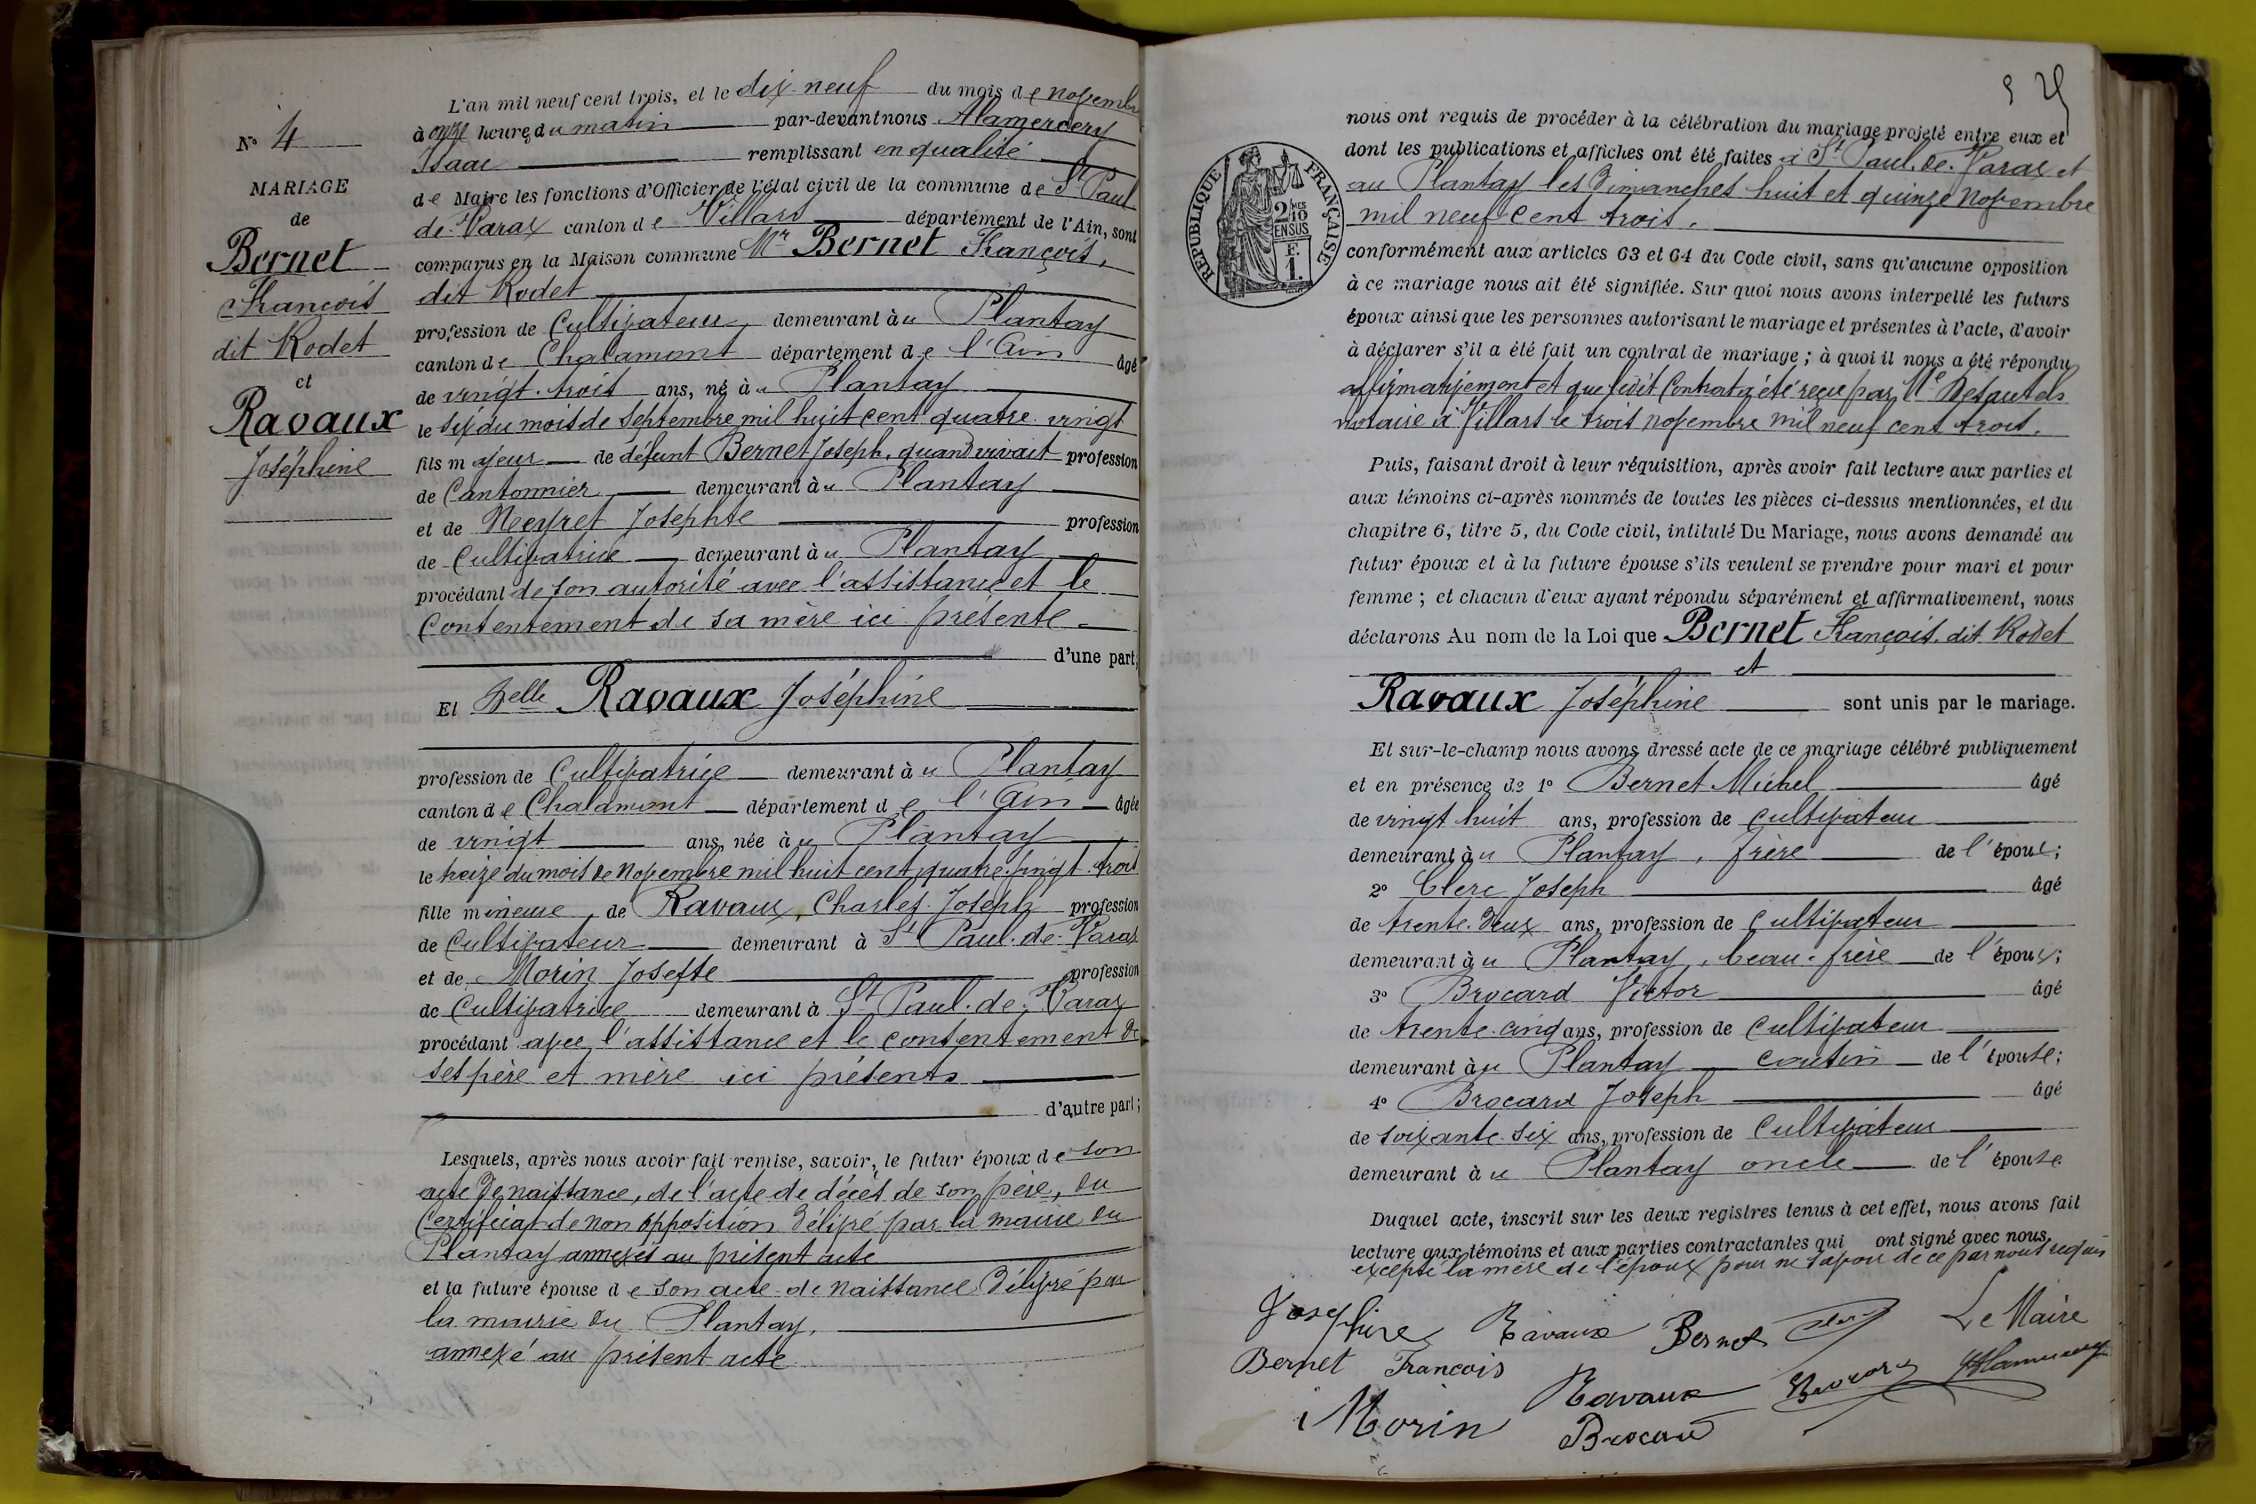 N° 4
MARIAGE
de
Bernet
François
dit Rodet
et
Ravaux
Joséphine
L'an mil neuf cent trois, et le dix-neuf du mois de novembre
à onze heures du matin par-devant nous Alamercery
Isaac remplissant en qualité
de Maire les fonctions d'Officier de l'état civil de la commune de St Paul
de Varax canton de Villars département de l'Ain, sont
comparus en la Maison commune Mr Bernet François,
dit Rodet
profession de Cultivateur demeurant à u Plantay
canton de Chalamont département de l'Ain âgé
de vingt-trois ans, né à u Plantay
le six du mois de Septembre mil huit cent quatre-vingt
fils majeur de défunt Bernet Joseph, quand vivait profession
de Cantonnier demeurant à u Plantay
et de Neyret Josephte profession
de Cultivatrice demeurant à u Plantay
procédant de son autorité avec l'assistance et le
Consentement de sa mère ici présente
d'une part;
Et Delle Ravaux Joséphine
profession de Cultivatrice demeurant à u Plantay
canton de Chalamont département de l'Ain âgée
de vingt ans, née à u Plantay
le treize du mois de Novembre mil huit cent quatre-vingt-trois
fille mineure de Ravaux, Charles-Joseph profession
de Cultivateur demeurant à St Paul-de-Varax
et de Morin Josefte profession
de Cultivatrice demeurant à St Paul-de-Varax
procédant avec l'assistance et le consentement de
ses père et mère ici présents
d'autre part;
Lesquels, après nous avoir fait remise, savoir, le futur époux de son
acte de naissance, de l'acte de décès de son père, du
Certificat de non opposition délivré par la mairie du
Plantay annexés au présent acte
et la future épouse de son acte de naissance délivré par
la mairie du Plantay,
annexé au présent acte
RÉPUBLIQUE FRANÇAISE
2 MES
10
EN SUS
F.
1.
nous ont requis de procéder à la célébration du mariage projeté entre eux et
dont les publications et affiches ont été faites à St Paul-de-Varax et
au Plantay les Dimanches huit et quinze Novembre
mil neuf cent trois.
conformément aux articles 63 et 64 du Code civil, sans qu'aucune opposition
à ce mariage nous ait été signifiée. Sur quoi nous avons interpellé les futurs
époux ainsi que les personnes autorisant le mariage et présentes à l'acte, d'avoir
à déclarer s'il a été fait un contrat de mariage; à quoi il nous a été répondu
affirmativement et que ledit Contrat a été reçu par Me Desautels
notaire à Villars le trois Novembre mil neuf cent trois.
Puis, faisant droit à leur réquisition, après avoir fait lecture aux parties et
aux témoins ci-après nommés de toutes les pièces ci-dessus mentionnées, et du
chapitre 6, titre 5, du Code civil, intitulé Du Mariage, nous avons demandé au
futur époux et à la future épouse s'ils veulent se prendre pour mari et pour
femme; et chacun d'eux ayant répondu séparément et affirmativement, nous
déclarons Au nom de la Loi que Bernet François, dit Rodet
et
Ravaux Joséphine sont unis par le mariage.
Et sur-le-champ nous avons dressé acte de ce mariage célébré publiquement
et en présence de 1° Bernet Michel âgé
de vingt huit ans, profession de Cultivateur
demeurant à u Plantay, frère de l'époux;
2° Clerc Joseph âgé
de trente-deux ans, profession de Cultivateur
demeurant à u Plantay, beau-frère de l'époux;
3° Brocard Victor âgé
de trente-cinq ans, profession de Cultivateur
demeurant à u Plantay cousin de l'épouse;
4° Brocard Joseph âgé
de soixante-six ans, profession de Cultivateur
demeurant à u Plantay oncle de l'épouse
Duquel acte, inscrit sur les deux registres tenus à cet effet, nous avons fait
lecture aux témoins et aux parties contractantes qui ont signé avec nous,
excepté la mère de l'époux pour ne savoir de ce par nous requis
Josephine Ravaux Bernet Clerc Le Maire
Bernet Francois Ravaux Brocard Alamercery
Morin Brocard